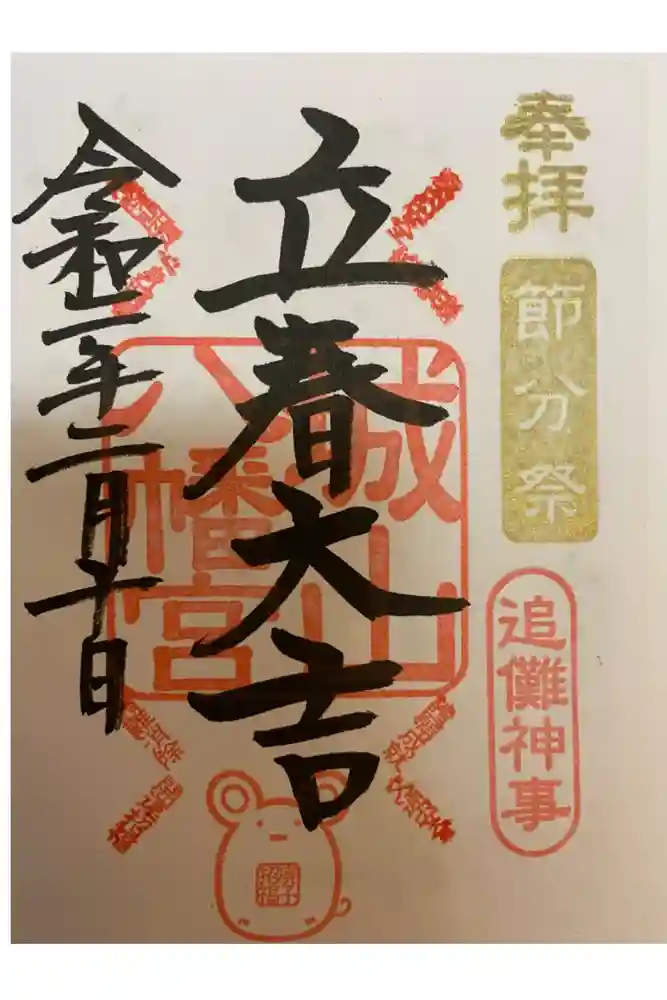 奉拝
節分祭
追儺神事
立春大吉
城山八幡宮
令和二年二月十日